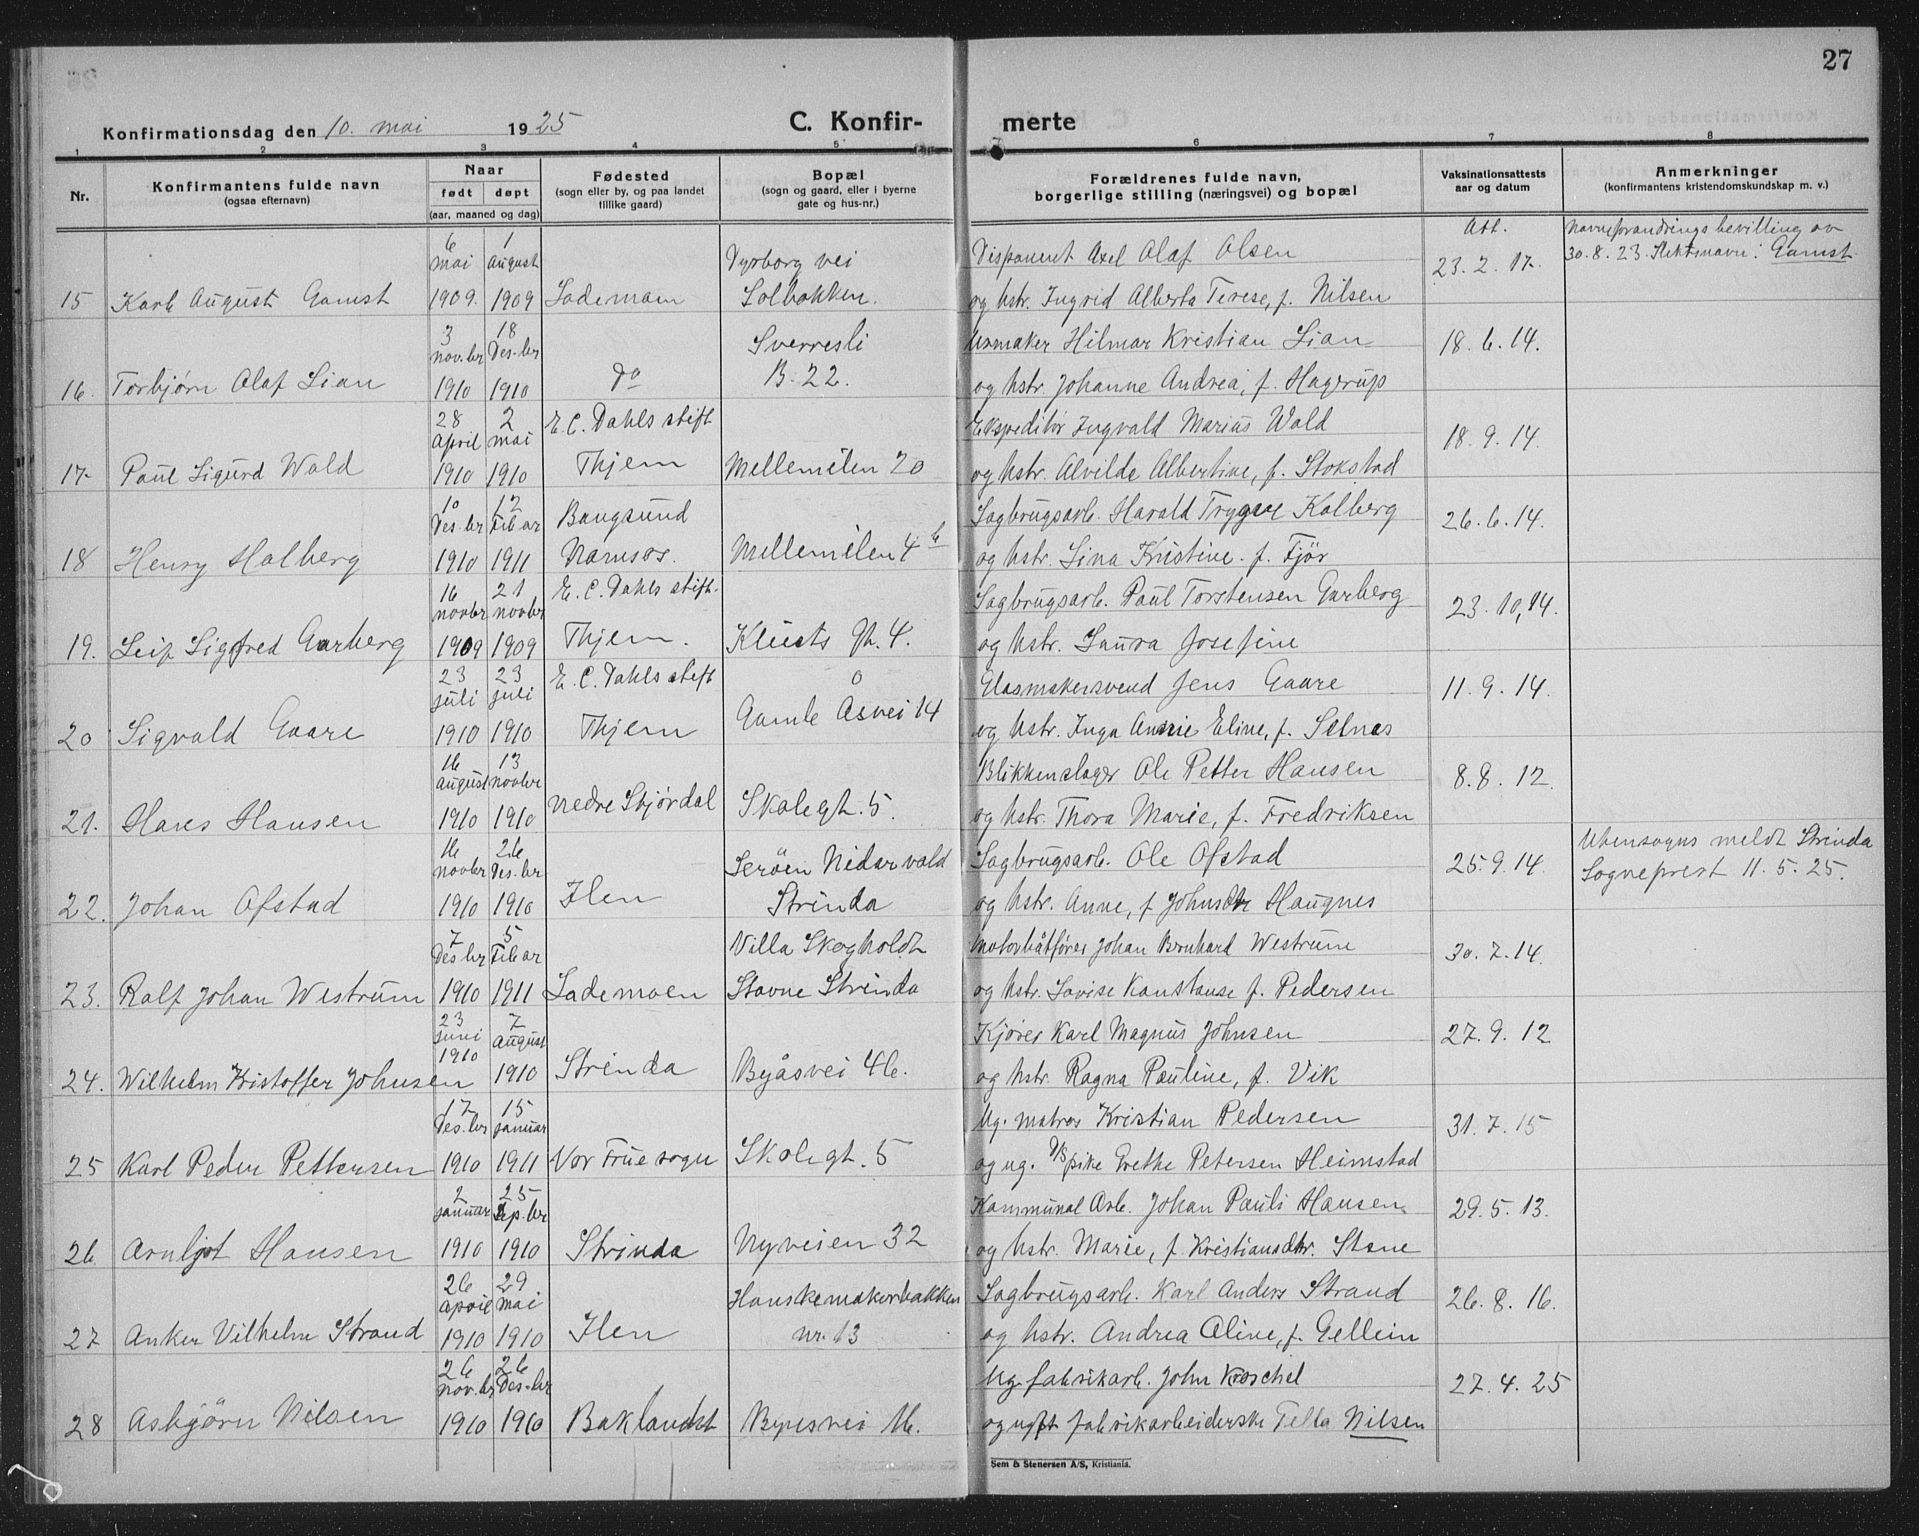 27
Konfirmationsdag den 10. mai 1925 C. Konfirmerte
1 2 3 4 5 6 7 8
Nr. Konfirmantens fulde navn (ogsaa efternavn) Naar født døpt (aar, maaned og dag) Fødested (sogn eller by, og paa landet tillike gaard) Bopæl (sogn og gaard, eller i byerne gate og hus-nr.) Forældrenes fulde navn, borgerlige stilling (næringsvei) og bopæl Vaksinationsattests aar og datum Anmerkninger (konfirmantens kristendomskundskap m. v.)
6 1 Att. Navneforandrings bevilling av
mai August Dyrborg vei Disponent Axel Olaf Olsen 23. 2. 17. 30. 8. 23. Slektsnavn: Gamst
15 Karl August Gamst 1909. 1909 Lademoen Solbakken. og hstr. Ingrid Alberta Terese, f. Nilsen
3 18
nov.br Des.br Sverresli Urmaker Hilmar Kristian Lian 18. 6. 14.
16. Torbjørn Olaf Lian 1910 1910 Do B. 22. og hstr. Johanne Andrea, f. Hagerup
28 2
April mai E. C. Dahls stift. Ekspeditør Ingvald Marius Wold 18. 9. 14.
17 Paul Sigurd Wold 1910 1910 Thjem Mellemilen 20 og hstr. Alvilde Albertine, f. Stokstad
10 12
Des.br Feb ar Bangsund Sagbrugsarb. Harald Trygve Kolberg 26. 6. 14.
18 Henry Holberg 1910 1911 Namsos. Mellemilen 4 b og hstr. Lina Kristine f. Fjør
16 21
novbr novbr E. C. Dahls stift. Sagbrugsarb. Paul Torstensen Garberg 23. 10. 14.
19. Leif Sigfred Garberg 1909 1909 Thjem. Kluets gt. 4. og hstr. Laura Josefine
23 23
juli juli E. C. Dahls stift Glasmakersvend Jens Gaare 11. 9. 14.
20 Sigvald Gaare 1910 1910 Thjem Gamle Åsvei 14 og hstr. Inga Annie Eline, f. Selnes
16 13
August novbr Blikkenslager Ole Petter Hansen 8. 8. 12.
21. Hans Hansen 1910 1910 nedre Stjørdal Skolegt. 5. og hstr. Thora Marie, f. Fredriksen
16 26 Utensogns meldt Strinda
novbr Des.br Serøen Nidarvold Sagbrugsarb. Ole Ofstad 25. 9. 14. Sogneprest 11. 5. 25.
22. Johan Ofstad 1910 1910 Ilen Strinda og hstr. Anne, f. Johnsdtr Haugnes
7 5
Des br Feb ar Villa Skogholdt Motorbåtfører Johan Bernhard Westrum 30. 7. 14.
23. Ralf Johan Westrum 1910 1911 Lademoen Stavne Strinda og hstr. Lovise Konstanse f. Pedersen
23 7
juni August Kjører Karl Magnus Johnsen 27. 9. 12
24. Wilhelm Kristoffer Johnsen 1910 1910 Strinda Byåsvei 46. og hstr. Ragna Pauline, f. Vik
17 15
Des.br januar Ug. matros Kristian Pedersen 31. 7. 15
25 Karl Peder Pettersen 1910 1911 Vor Frue sogn Skolegt. 5 og ug. pike Grethe Petersen Heimstad
2 25
januar Sep.br Kommunal Arb. Johan Pauli Hansen. 29. 5. 13.
26 Arnljot Hansen 1910 1910 Strinda Nyveien 32 og hstr. Marie, f. Kristiansdtr. Stene
26 29
April Mai Hanskemakerbakken Sagbrugsarb. Karl Anders Strand 26. 8. 16.
27 Anker Vilhelm Strand 1910 1910 Ilen nr. 13 og hstr. Andrea Oline, f. Gellein
26 26
nov.br Des.br Ug fabrikarb. John Kroschel 27. 4. 25
28 Asbjørn Nilsen 1910 1910 Baklandet Bynesvei 16. og ugift fabrikarbeiderske Tella Nilsen
Sem & Stenersen A/S, Kristiania.